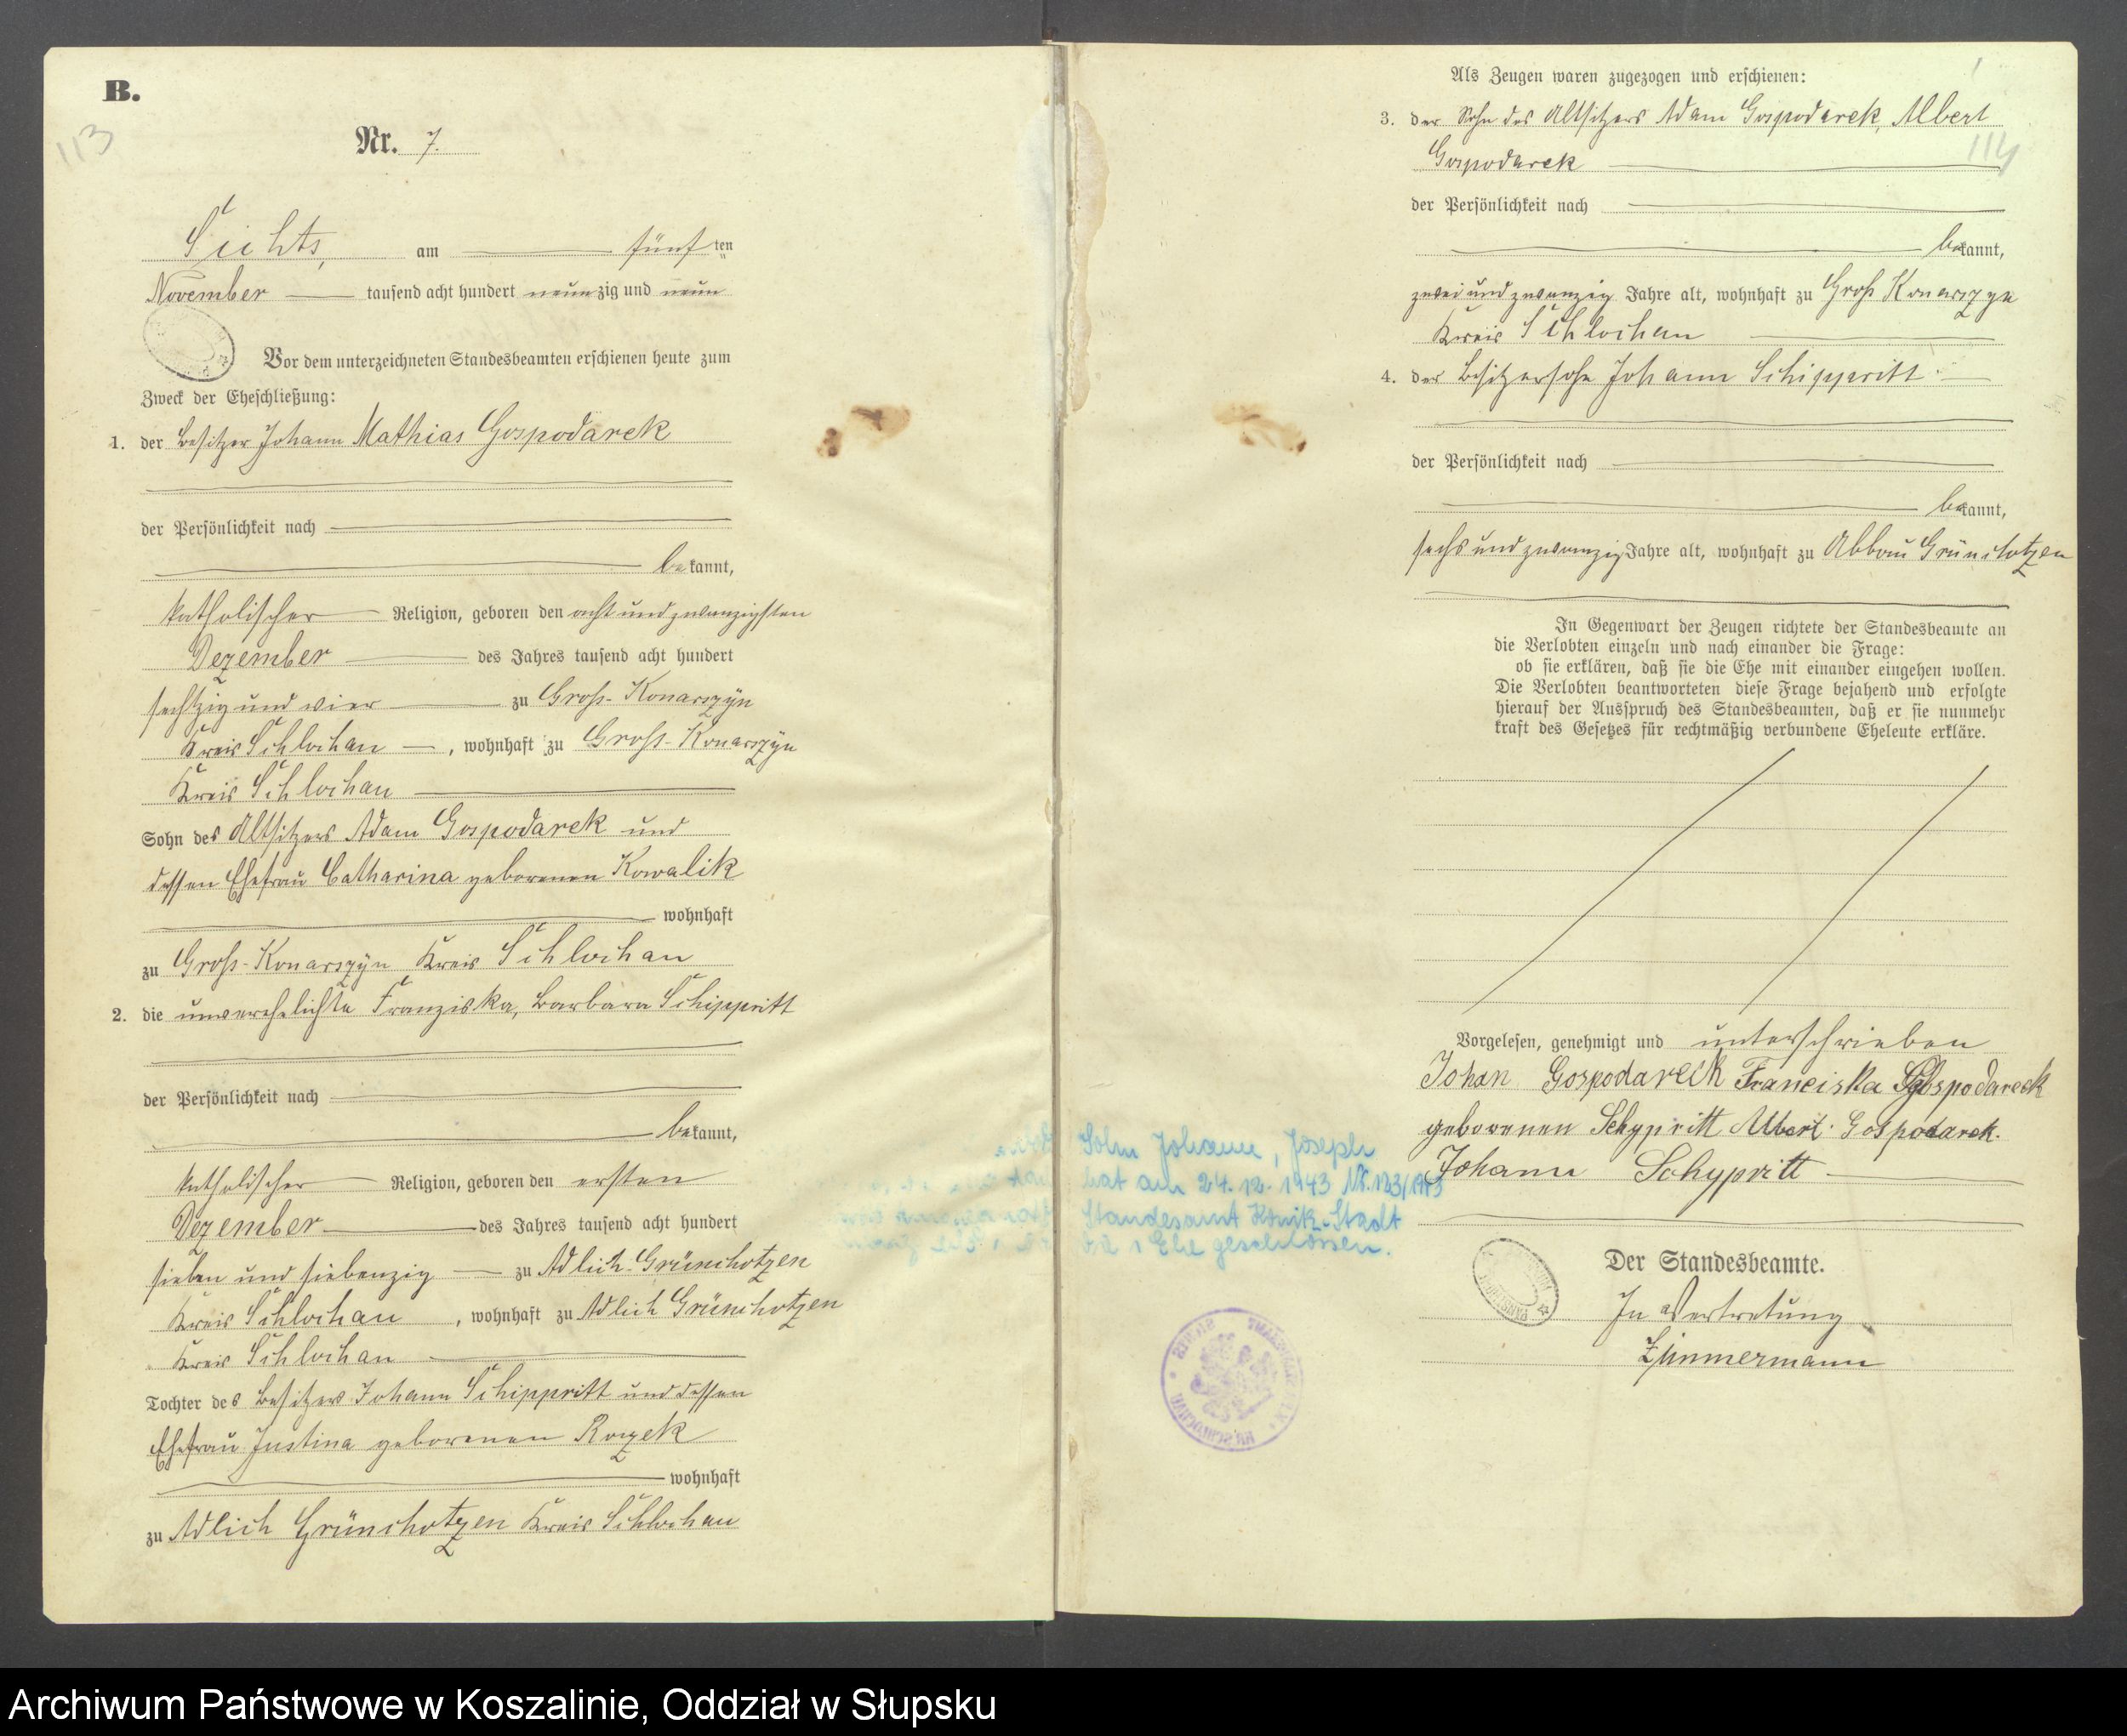 B.
113
Nr. 7.
Sichts, am fünf ten
November tausend acht hundert neunzig und neun
Vor dem unterzeichneten Standesbeamten erschienen heute zum
Zweck der Eheschließung:
1. der Besitzer Johann Mathias Gospodarek
der Persönlichkeit nach
bekannt,
katholischer Religion, geboren den acht und zwanzigsten
Dezember des Jahres tausend acht hundert
sechszig und vier zu Gross-Konarszyn
Kreis Schlochau, wohnhaft zu Gross-Konarszyn
Kreis Schlochau
Sohn des Altsitzers Adam Gospodarek und
dessen Ehefrau Catharina geborenen Kowalik
wohnhaft
zu Gross-Konarszyn Kreis Schlochau
2. die unverehelichte Franziska, Barbara Schippritt
der Persönlichkeit nach
bekannt,
katholischer Religion, geboren den ersten
Dezember des Jahres tausend acht hundert
sieben und siebenzig zu Adlich Grünchotzen
Kreis Schlochau, wohnhaft zu Adlich Grünchotzen
Kreis Schlochau
Tochter des Besitzers Johann Schippritt und dessen
Ehefrau Justina geborenen Rozek
wohnhaft
zu Adlich Grünchotzen Kreis Schlochau
Als Zeugen waren zugezogen und erschienen:
3. der Sohn des Altsitzers Adam Gospodarek, Albert
114
Gospodarek
der Persönlichkeit nach
bekannt,
zwei und zwanzig Jahre alt, wohnhaft zu Groß Konarszyn
Kreis Schlochau
4. der Besitzersohn Johann Schippritt
der Persönlichkeit nach
bekannt,
sechs und zwanzig Jahre alt, wohnhaft zu Abbau Grünchotzen
In Gegenwart der Zeugen richtete der Standesbeamte an
die Verlobten einzeln und nach einander die Frage:
ob sie erklären, daß sie die Ehe mit einander eingehen wollen.
Die Verlobten beantworteten diese Frage bejahend und erfolgte
hierauf der Ausspruch des Standesbeamten, daß er sie nunmehr
kraft des Gesetzes für rechtmäßig verbundene Eheleute erkläre.
Vorgelesen, genehmigt und unterschrieben
Johan Gospodareck Franciska Gospodareck
geborenen Schypritt Albert Gospodarek.
Johann Schypritt
Sohn Johann, Joseph
hat am 24.12.1943 Nr. 123/1943
Standesamt Konitz-Stadt
die 1 Ehe geschlossen.
Der Standesbeamte.
In Vertretung
Zimmermann
Archiwum Państwowe w Koszalinie, Oddział w Słupsku